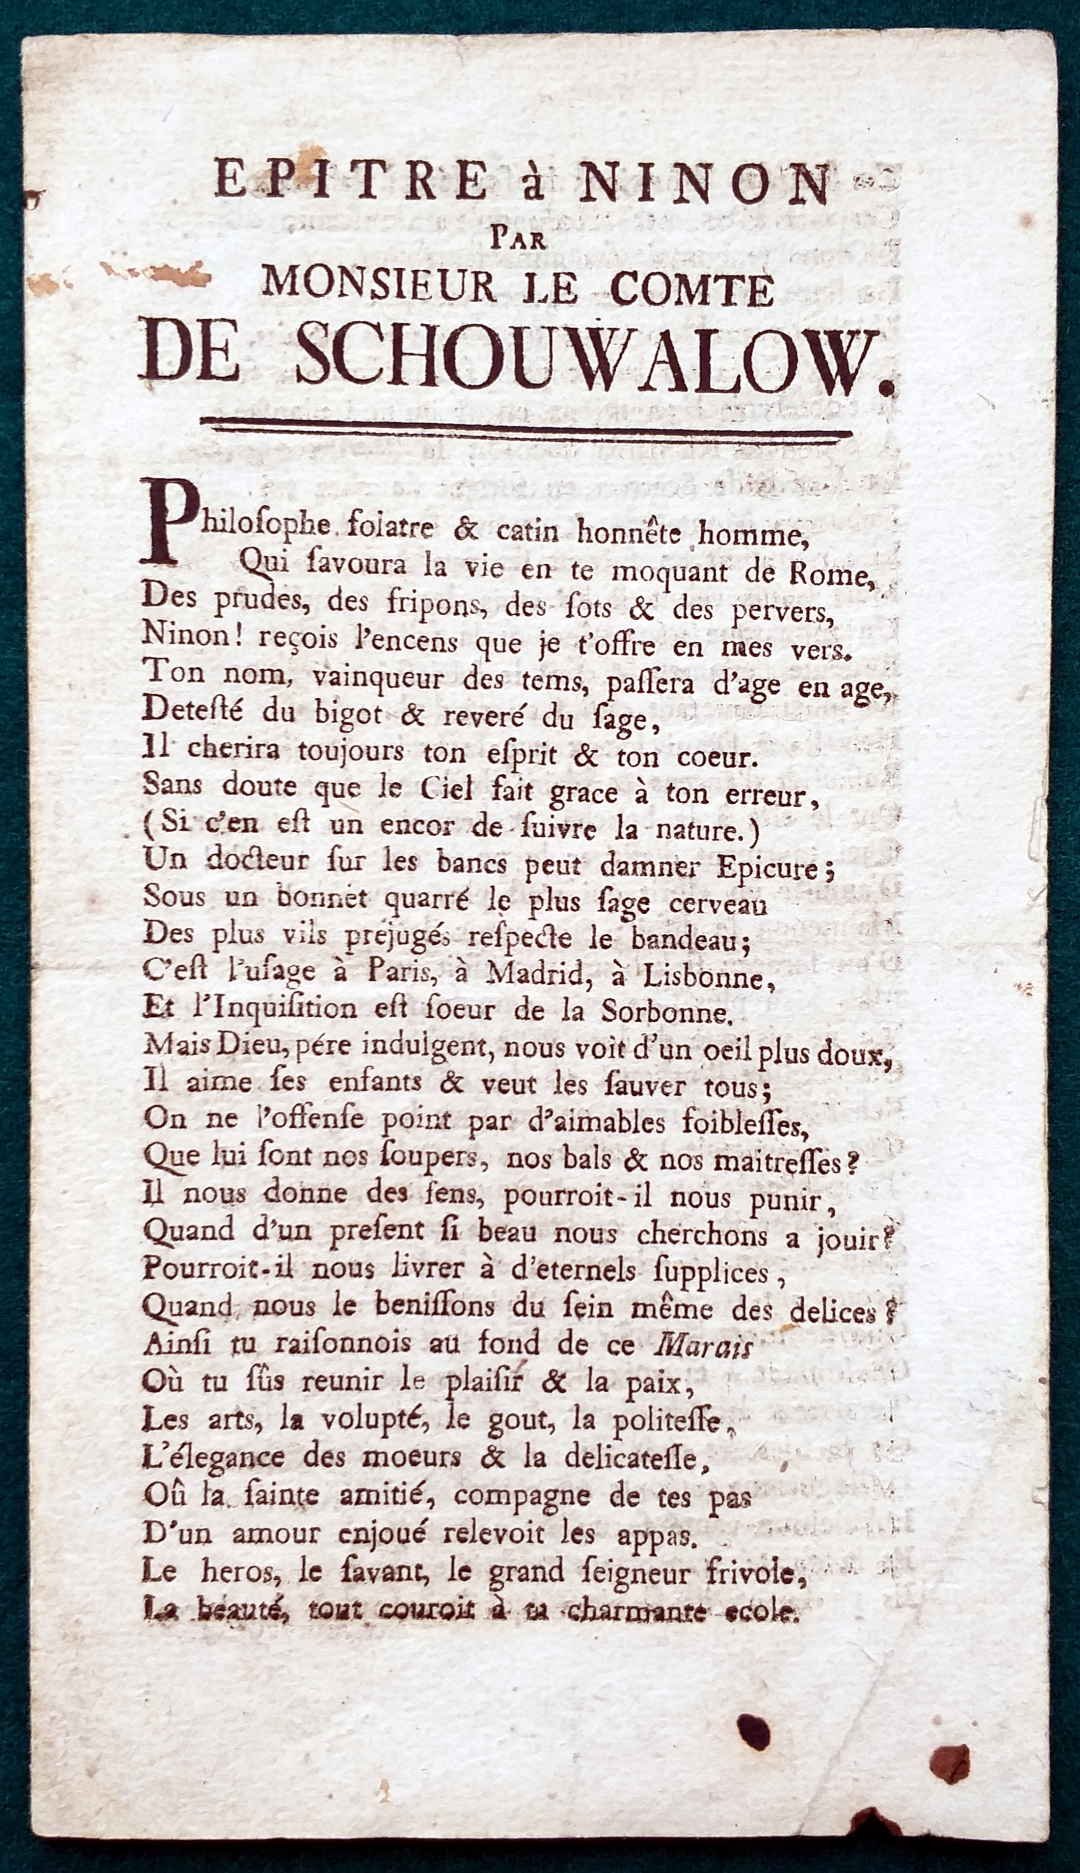 EPITRE à NINON
PAR
MONSIEUR LE COMTE
DE SCHOUWALOW.
Philoſophe folatre & catin honnête homme,
Qui ſavoura la vie en te moquant de Rome,
Des prudes, des fripons, des ſots & des pervers,
Ninon! reçois l'encens que je t'offre en mes vers.
Ton nom, vainqueur des tems, paſſera d'age en age,
Deteſté du bigot & reveré du ſage,
Il cherira toujours ton eſprit & ton coeur.
Sans doute que le Ciel fait grace à ton erreur,
(Si c'en eſt un encor de ſuivre la nature.)
Un docteur ſur les bancs peut damner Epicure;
Sous un bonnet quarré le plus ſage cerveau
Des plus vils prejugés reſpecte le bandeau;
C'eſt l'uſage à Paris, à Madrid, à Lisbonne,
Et l'Inquiſition eſt ſoeur de la Sorbonne.
Mais Dieu, pére indulgent, nous voit d'un oeil plus doux,
Il aime ſes enfants & veut les ſauver tous;
On ne l'offenſe point par d'aimables foibleſſes,
Que lui ſont nos ſoupers, nos bals & nos maitreſſes?
Il nous donne des ſens, pourroit-il nous punir,
Quand d'un preſent ſi beau nous cherchons a jouir?
Pourroit-il nous livrer à d'eternels ſupplices,
Quand nous le beniſſons du ſein même des delices?
Ainſi tu raiſonnois au fond de ce Marais
Où tu ſûs reunir le plaiſir & la paix,
Les arts, la volupté, le gout, la politeſſe,
L'élegance des moeurs & la delicateſſe,
Oû la ſainte amitié, compagne de tes pas
D'un amour enjoué relevoit les appas.
Le heros, le ſavant, le grand ſeigneur frivole,
La beauté, tout couroit à ta charmante ecole.